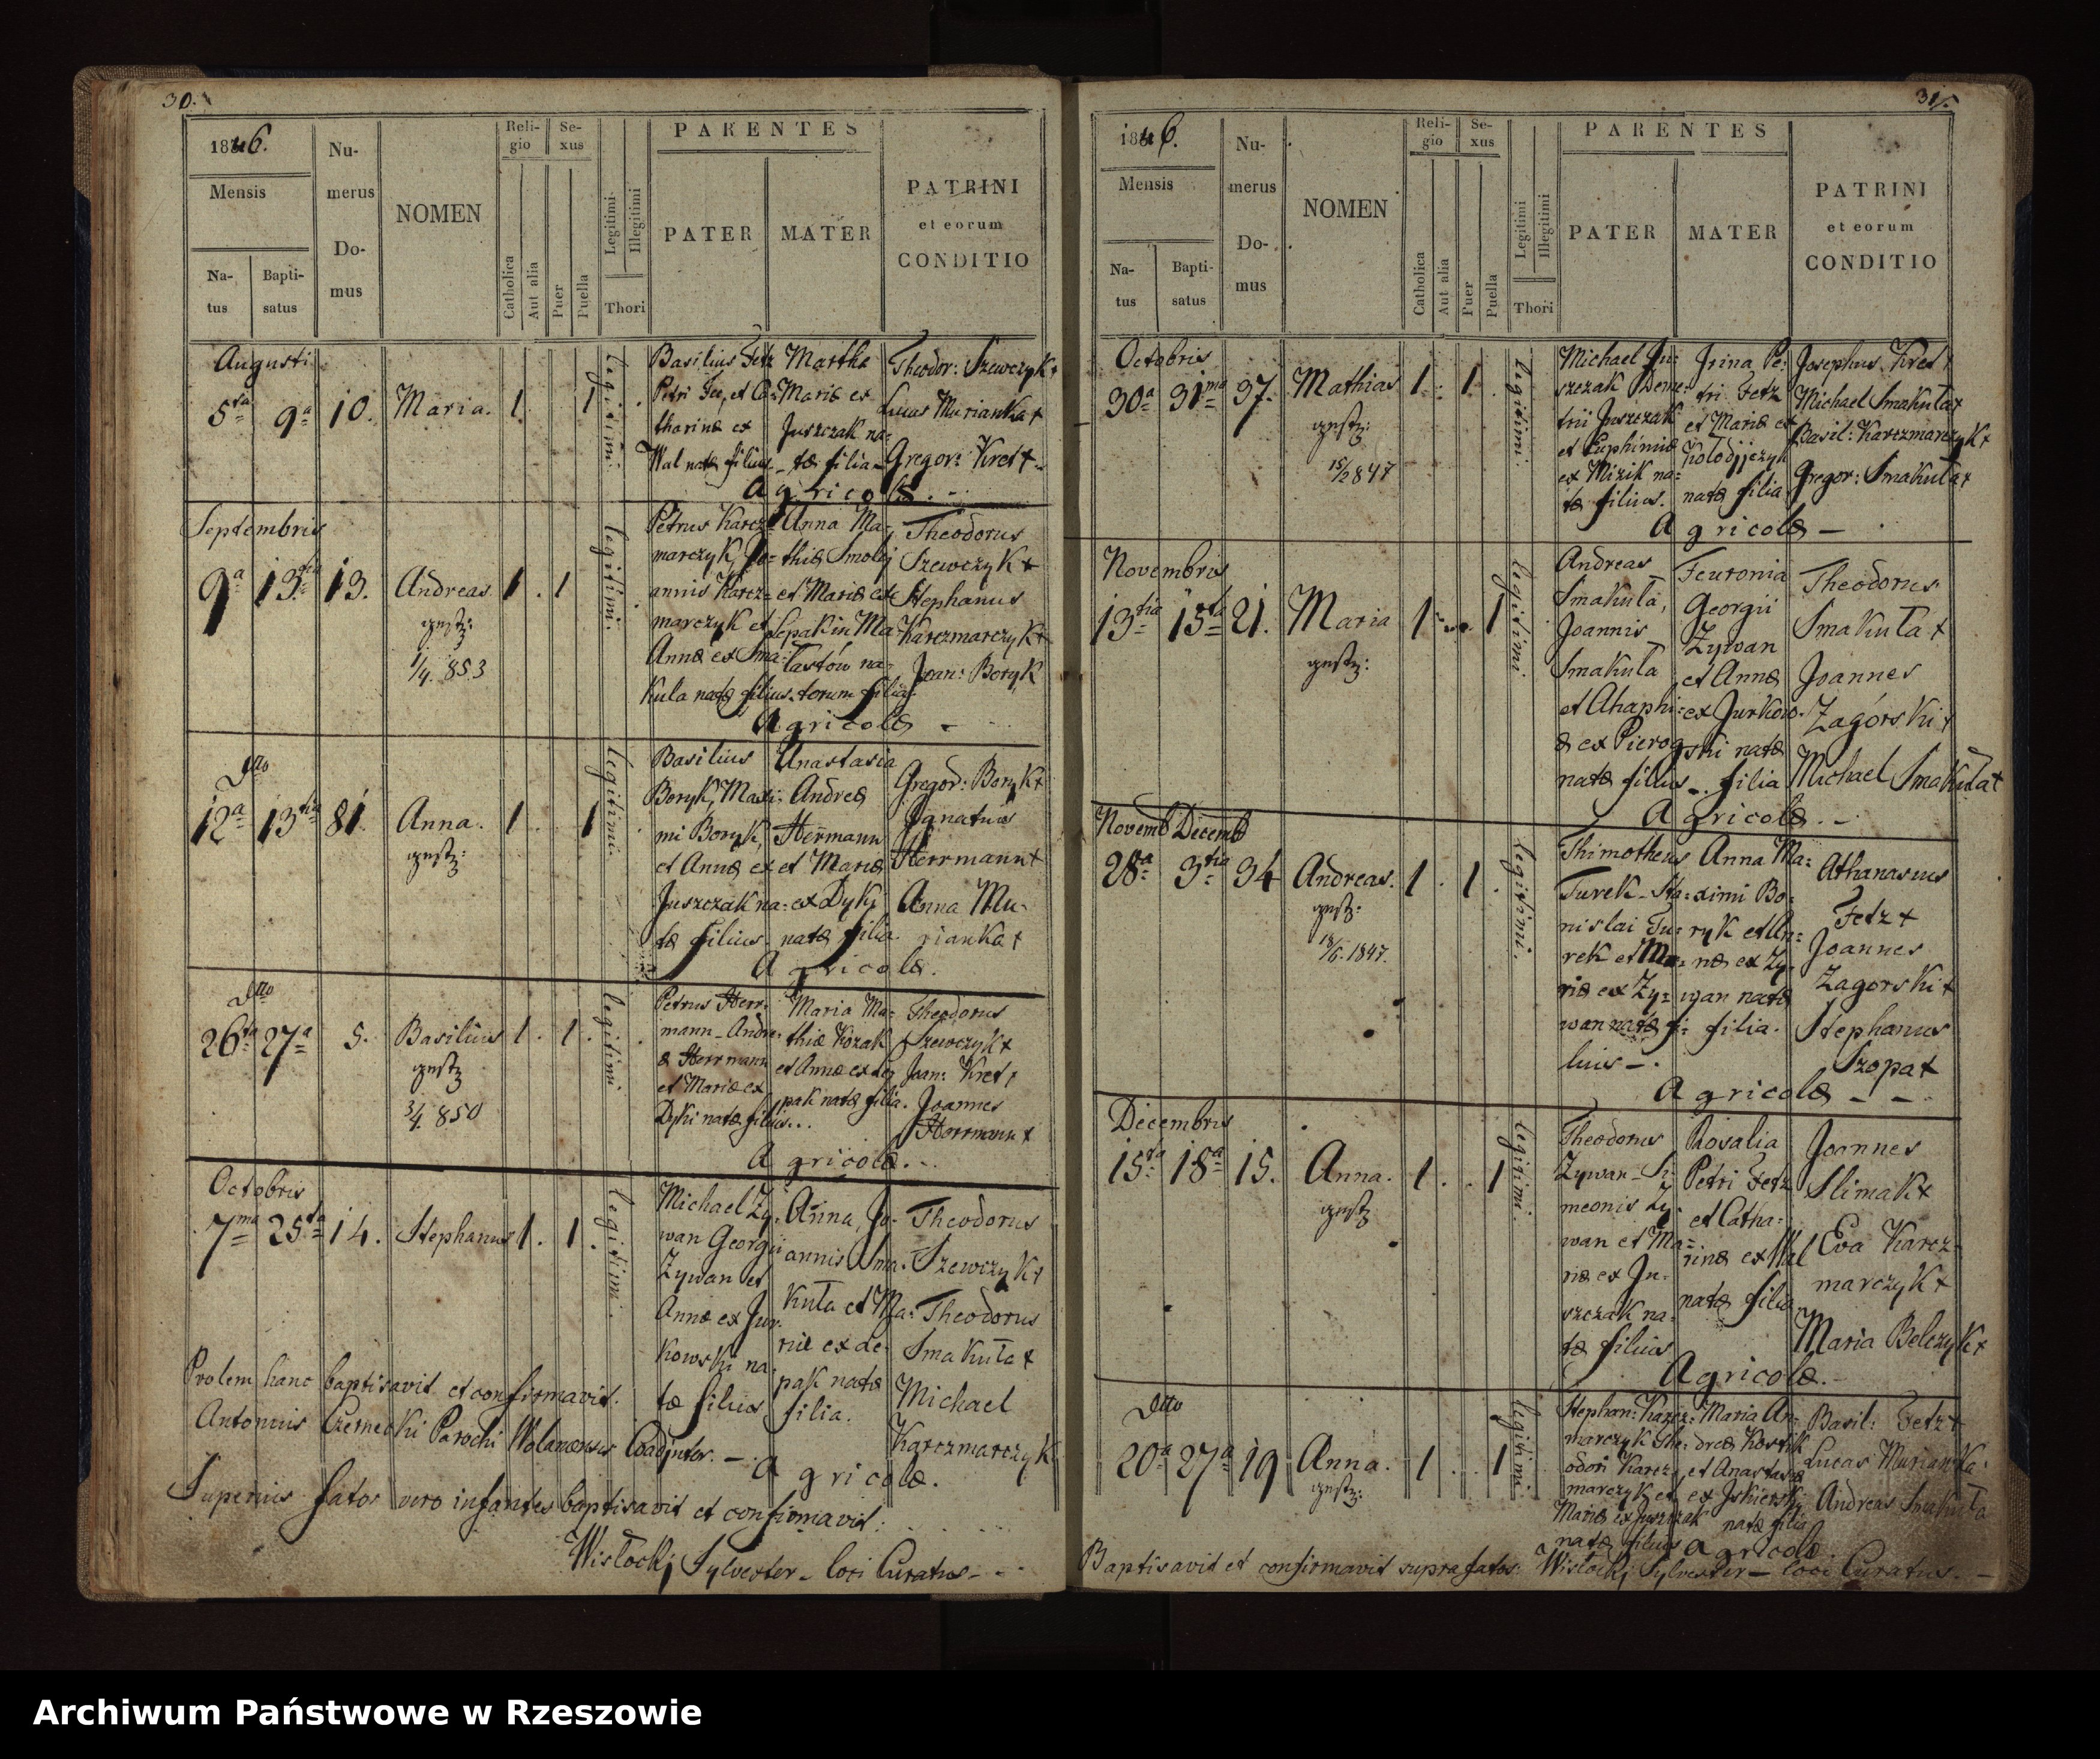 30.
1846.
Mensis
Na-
tus
Bapti-
satus
Nu-
merus
Do-
mus
NOMEN
Reli-
gio
Catholica
Aut alia
Se-
xus
Puer
Puella
Legitimi
Illegitimi
Thori
PARENTES
PATER
MATER
PATRINI
et eorum
CONDITIO
Augusti
5ta 9a 10. Maria. 1. 1. legitimi.
Basilius Fetz
Petri Fetz, et Ca=
tharinæ ex
Wal natæ filius
Martha
Mariæ ex
Juszczak na=
tæ filia
Theodor: Szewczyk +
Lucas Murianka +
Gregor: Kret +
Agricolæ.
Septembris
9a 13tia 13. Andreas. 1. 1. legitimi.
1/4. 853
Petrus Karcz=
marczyk, Jo=
annis Karcz=
marczyk et
Annæ ex Sma=
kula natæ filius.
Anna Ma=
thiæ Smolij
et Mariæ ex
Lepak in Ma
tastów na=
torum filia.
Theodorus
Szewczyk +
Stephanus
Karczmarczyk +
Joan: Boryk
Agricolæ
Dtto
12a 13tia 81. Anna. 1. 1. legitimi.
Basilius
Boryk, Maxi=
mi Boryk,
et Annæ ex
Juszczak na=
tæ filius.
Anastasia
Andreæ
Hermann
et Mariæ
ex Dykij
natæ filia.
Gregor: Boryk +
Ignatius
Herrmann +
Anna Mu-
rianka +
Agricolæ.
Dtto
26ta 27a 5. Basilius 1. 1. legitimi.
3/4. 850
Petrus Herr=
mann Andre=
æ Herrmann
et Mariæ ex
Dyki natæ filius..
Maria Ma=
thiæ Kozak
et Annæ ex Le
pak natæ filia.
Theodorus
Szewczyk +
Joan: Kret +
Joannes
Herrmann +
Agricolæ.
Octobris
7ma 25ta 14. Stephanus 1. 1. legitimi.
Michael Zy=
wan Georgii
Zywan et
Annæ ex Jur=
kowski na=
tæ filius
Anna, Jo-
annis Sma=
kuła et Ma=
riæ ex Le-
pak natæ
filia.
Theodorus
Szewczyk +
Theodorus
Smakuła +
Michael
Karczmarczyk
Agricolæ.
Prolem hanc baptisavit et confirmavit.
Antonius Czernecki Parochi Wolanensis Coadjutor. –
Superius fatos vero infantes baptisavit et confirmavit:
Wisłocki Sylvester – loci Curatus –
31.
1846.
Mensis
Na-
tus
Bapti-
satus
Nu-
merus
Do-
mus
NOMEN
Reli-
gio
Catholica
Aut alia
Se-
xus
Puer
Puella
Legitimi
Illegitimi
Thori
PARENTES
PATER
MATER
PATRINI
et eorum
CONDITIO
Octobris
30a 31ma 37. Mathias 1. 1. legitimi.
15/2 847
Michael Ju=
szczak Deme=
trii Juszczak
et Euphimiæ
ex Mizik na=
tæ filius.
Irina Pe=
tri Fetz
et Mariæ ex
natæ filia
Josephus Kret +
Michael Smakuła +
Basil: Karczmarczyk +
Gregor: Smakuła +
Agricolæ –
Novembris
13tia 15ta 21. Maria 1. 1 legitimi.
Andreas
Smakuła,
Joannis
Smakuła
et Ahaphi=
æ ex Pierog
natæ filius
Feuronia
Georgii
Zywan
et Annæ
ex Jurkow=
ski natæ
filia
Theodorus
Smakuła +
Joannes
Zagórski +
Michael Smakuła +
Agricolæ.
Novemb Decemb
28a 3tia 34 Andreas. 1. 1. legitimi.
18/6. 1847.
Thimotheus
Turek – Sta=
nislai Tu=
rek et Ma=
riæ ex Zy=
wan natæ fi=
lius –.
Anna Ma=
ximi Bo=
ryk et An=
næ ex Zy=
wan natæ
filia.
Athanasius
Fetz +
Joannes
Zagorski +
Stephanus
Szopa +
Agricolæ – –
Decembris
15ta 18a 15. Anna. 1. 1 legitimi.
Theodorus
Zywan – Si=
meonis Zy=
wan et Ma=
riæ ex Ju-
szczak na=
tæ filius
Rosalia
Petri Fetz
et Catha=
rinæ ex Wal
natæ filia
Joannes
Slimak +
Eva Karcz-
marczyk +
Maria Belczyk +
Agricolæ.
Dtto
20a 27a 19 Anna. 1. 1 legitimi.
Stephan: Karcz=
marczyk The=
odori Karcz=
marczyk et
Mariæ ex Juszczak
natæ filius
Maria An=
dreæ Kostik
et Anastasiæ
natæ filia
Basil: Fetz +
Lucas Murianka.
Andreas Smakuła
Agricolæ.
Baptisavit et confirmavit supra fatos: Wisłocki Sylvester – loci Curatus. –
Archiwum Państwowe w Rzeszowie